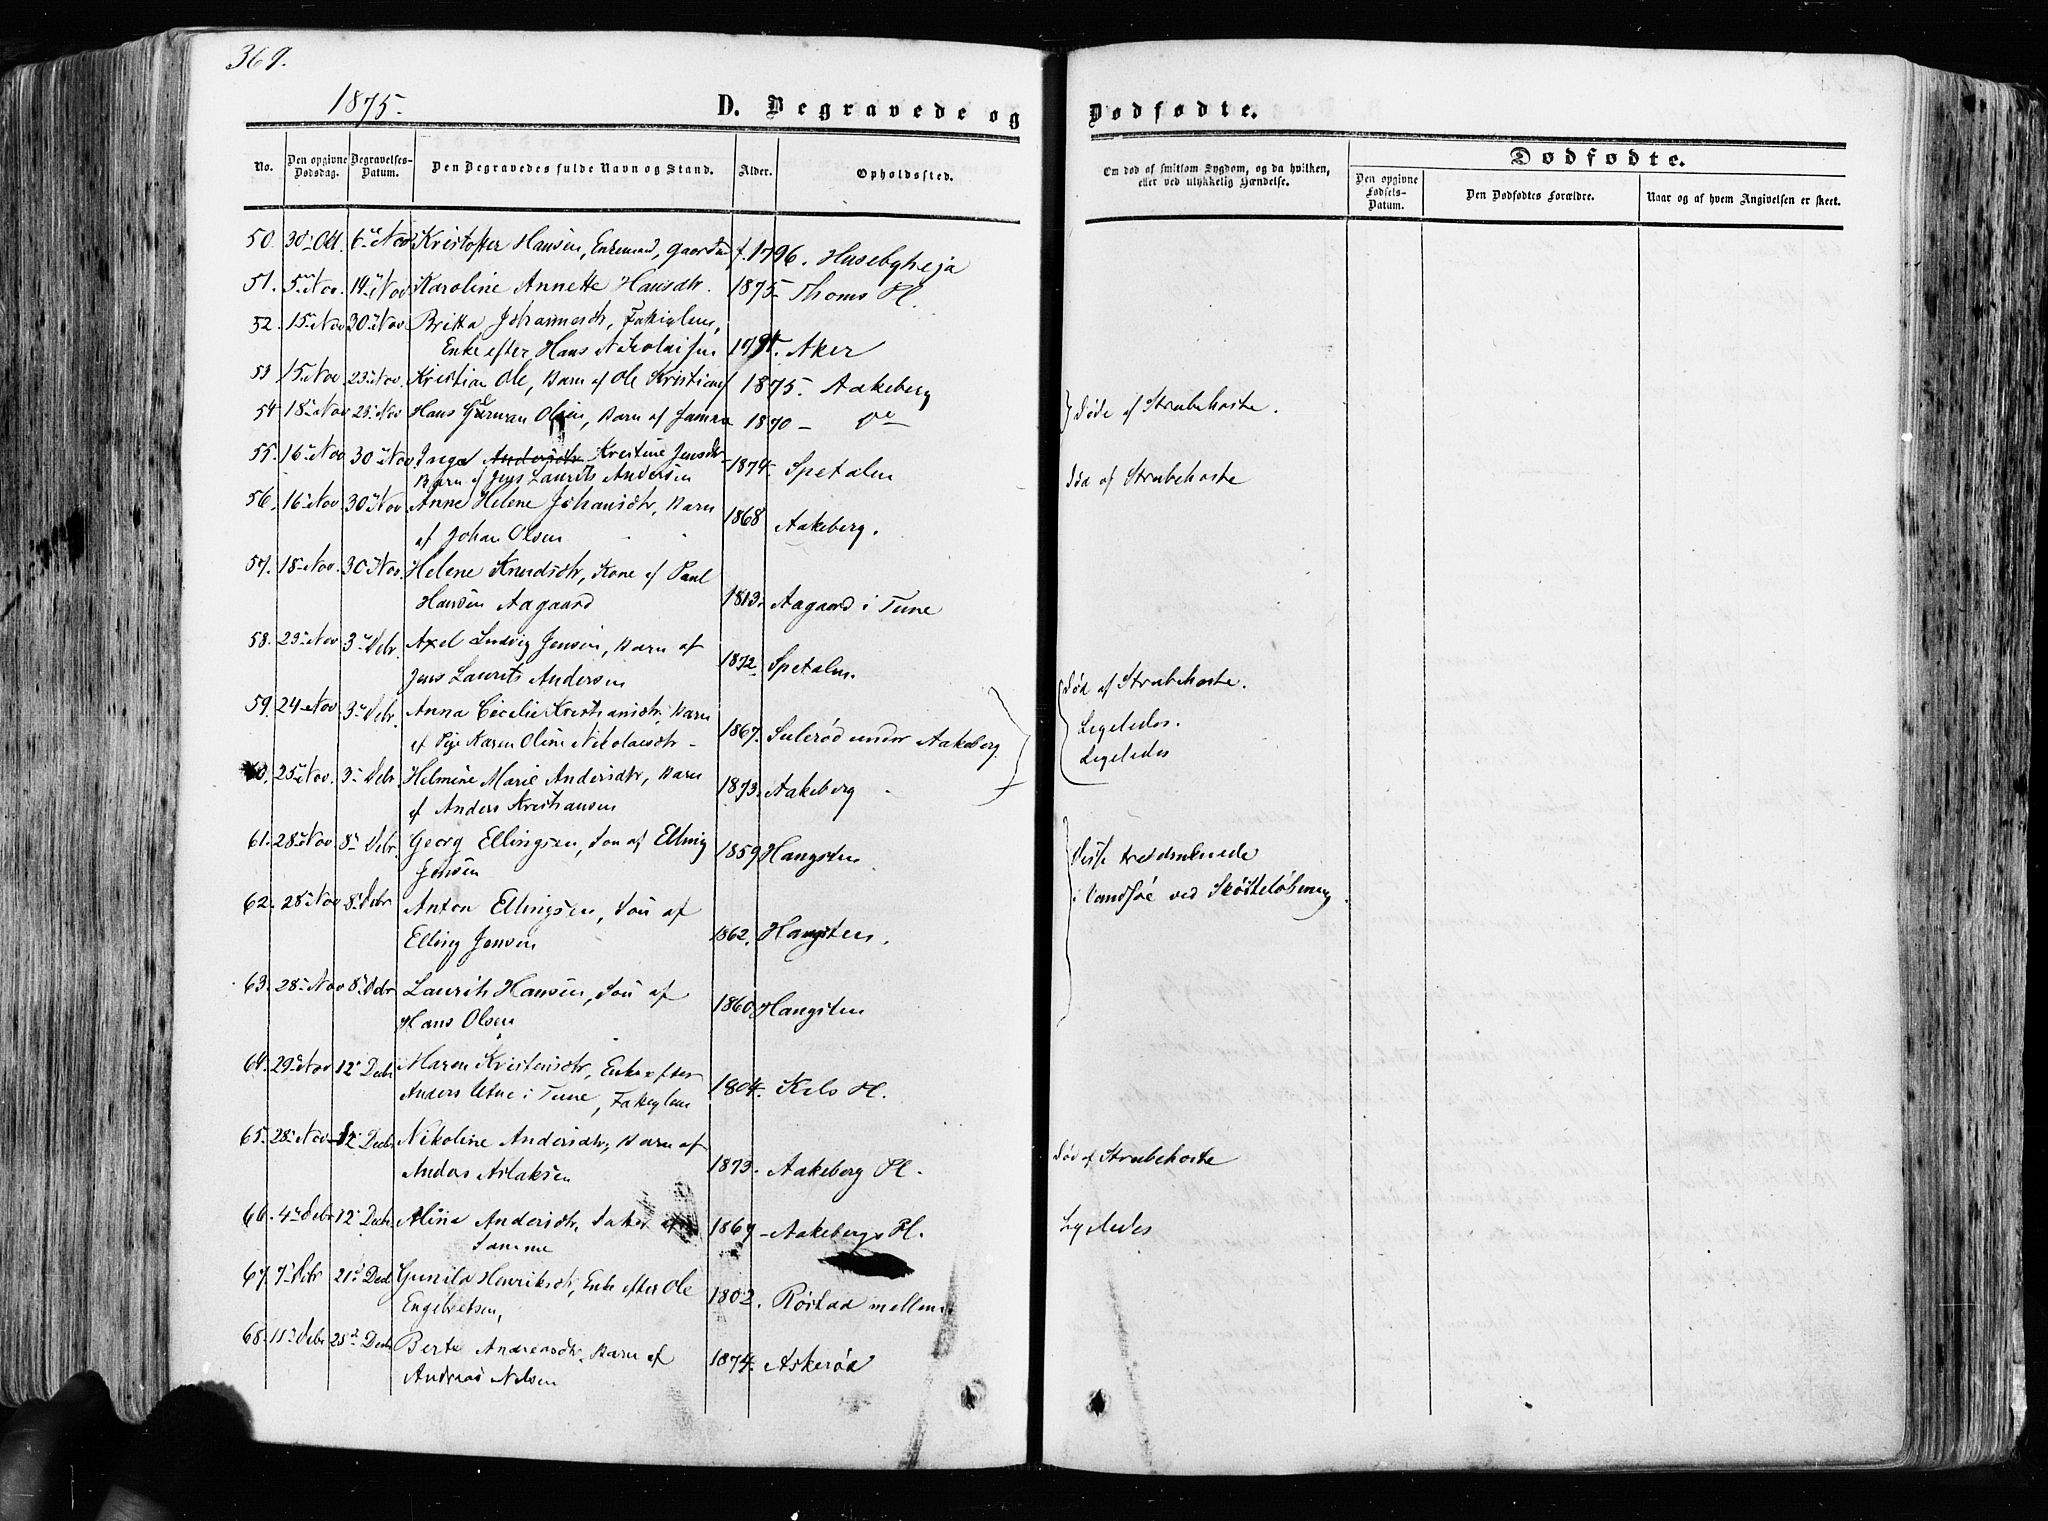 369.
1875.
D. Begravede og Dødfødte.
No. Den opgivne Dødsdag. Begravelses-Datum. Den Begravedes fulde Navn og Stand. Alder. Opholdssted.
Om død af smitsom Sygdom, og da hvilken, eller ved ulykkelig Hændelse.
Dødfødte.
Den opgivne Fødsels-Datum. Den Dødfødtes Forældre. Naar og af hvem Angivelsen er skeet.
50. 30 Oct 6 Nov Kristoffer Hansen, Enkemand, f. 1796. Husebyheja
51. 5 Nov. 14 Nov Karoline Annette Hansdtr. 1875 Thoms Pl.
52. 15 Nov 30 Nov Britta Johannesdtr, Fattiglem,
Enke efter Hans Nikolaisen Aker
53 15 Nov 23 Nov. Kristian Ole, Barn af Ole Kristians 1875. Aakeberg
54 18 Nov 23 Nov Hans Olsen, Barn af Samme 1870 – Do } Døde af Strubehoste.
55. 16 Nov 30 Nov Inga Andersdtr Kristine Jensdtr
Barn af Jens Laurits Andersen 1874. Spetalen Død af Strubehoste
56. 16 Nov. 30 Nov Anne Helene Johansdtr, Barn
af Johan Olsen 1868 Aakeberg.
57. 18 Nov. 30 Nov. Helene Knudsdtr, Kone af Paul
Hansen Aagaard 1813. Aagaard i Tune
58. 23 Nov 3 Debr. Axel Ludvig Jensen, Barn af
Jens Laurits Andersen 1872. Spetalen. Død af Strubehoste.
59. 24 Nov 3 Debr. Anna Cecilie Kristiansdtr. Barn
af Pige Karen Oline Nikolaisdtr 1867. Sulerød under Aakeberg. Ligeledes.
60. 25 Nov. 3 Debr. Helmine Marie Andersdtr, Barn
af Anders Kristiansen 1873. Aakeberg Ligeledes
61. 28 Nov. 8 Debr. Georg Ellingsen, Søn af Elling
Jensen 1859 Hangsten Disse tre druknede
62. 28 Nov 8 Debr Anton Ellingsen, Søn af
Elling Jensen 1862. Hangsten. i Vandsjøe ved Skøiteløbning.
63. 28 Nov 8 Debr Laurits Hansen, Søn af
Hans Olsen 1860 Hangsten
64. 29 Nov 12 Decbr Maren Kristensdtr, Enke efter
Anders i Tune, Fattiglem 1804. Kils Pl.
65. 28 Nov 12 Decbr Nikoline Andersdtr, Barn af
Anders Aslaksen 1873. Aakeberg Pl. Død af Strubehoste
66. 4 Debr 12 Decbr Alina Andersdtr, Datter af
Samme 1869 Aakebergs Pl. Ligeledes
67. 7 Debr 21 Decbr Gunild Henriksdtr, Enke efter Ole
Engebretsen, 1802. Røstad mellem
68. 11 Debr 23 Decbr Berte Andreasdtr. Barn af
Andreas Nilsen 1874. Askerød